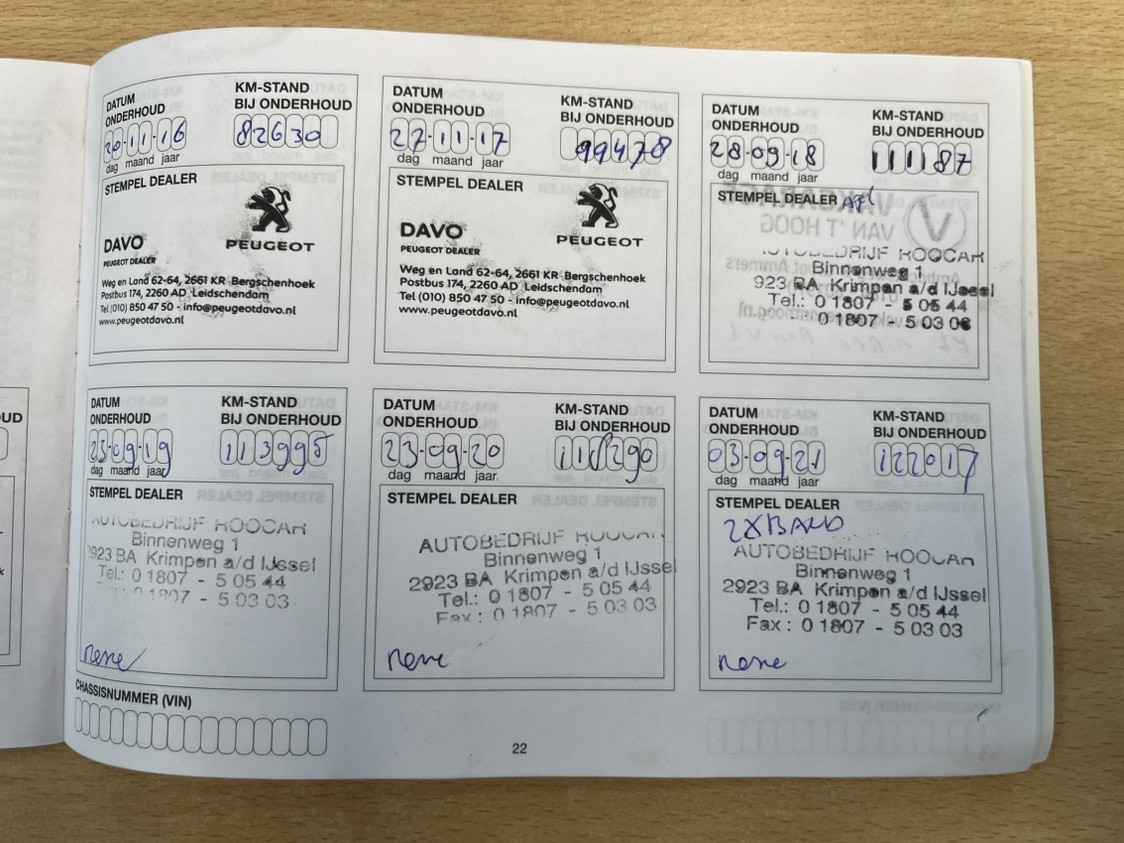 DATUM
ONDERHOUD
20-11-16
dag maand jaar
KM-STAND
BIJ ONDERHOUD
82630
STEMPEL DEALER
PEUGEOT
DAVO
PEUGEOT DEALER
Weg en Land 62-64, 2661 KR Bergschenhoek
Postbus 174, 2260 AD Leidschendam
Tel (010) 850 47 50 - info@peugeotdavo.nl
www.peugeotdavo.nl
DATUM
ONDERHOUD
27-11-17
dag maand jaar
KM-STAND
BIJ ONDERHOUD
99478
STEMPEL DEALER
PEUGEOT
DAVO
PEUGEOT DEALER
Weg en Land 62-64, 2661 KR Bergschenhoek
Postbus 174, 2260 AD Leidschendam
Tel (010) 850 47 50 - info@peugeotdavo.nl
www.peugeotdavo.nl
DATUM
ONDERHOUD
28-09-18
dag maand jaar
KM-STAND
BIJ ONDERHOUD
111187
STEMPEL DEALER
AUTOBEDRIJF ROOCAR
Binnenweg 1
923 BA Krimpen a/d IJssel
Tel.: 0 1807 - 5 05 44
0 1807 - 5 03 03
DATUM
ONDERHOUD
23-09-19
dag maand jaar
KM-STAND
BIJ ONDERHOUD
113995
STEMPEL DEALER
AUTOBEDRIJF ROOCAR
Binnenweg 1
2923 BA Krimpen a/d IJssel
Tel.: 0 1807 - 5 05 44
0 1807 - 5 03 03
rene
DATUM
ONDERHOUD
23-09-20
dag maand jaar
KM-STAND
BIJ ONDERHOUD
118290
STEMPEL DEALER
AUTOBEDRIJF ROOCAR
Binnenweg 1
2923 BA Krimpen a/d IJssel
Tel.: 0 1807 - 5 05 44
Fax : 0 1807 - 5 03 03
rene
DATUM
ONDERHOUD
03-09-21
dag maand jaar
KM-STAND
BIJ ONDERHOUD
122017
STEMPEL DEALER
2X BAND
AUTOBEDRIJF ROOCAR
Binnenweg 1
2923 BA Krimpen a/d IJssel
Tel.: 0 1807 - 5 05 44
Fax : 0 1807 - 5 03 03
rene
CHASSISNUMMER (VIN)
22